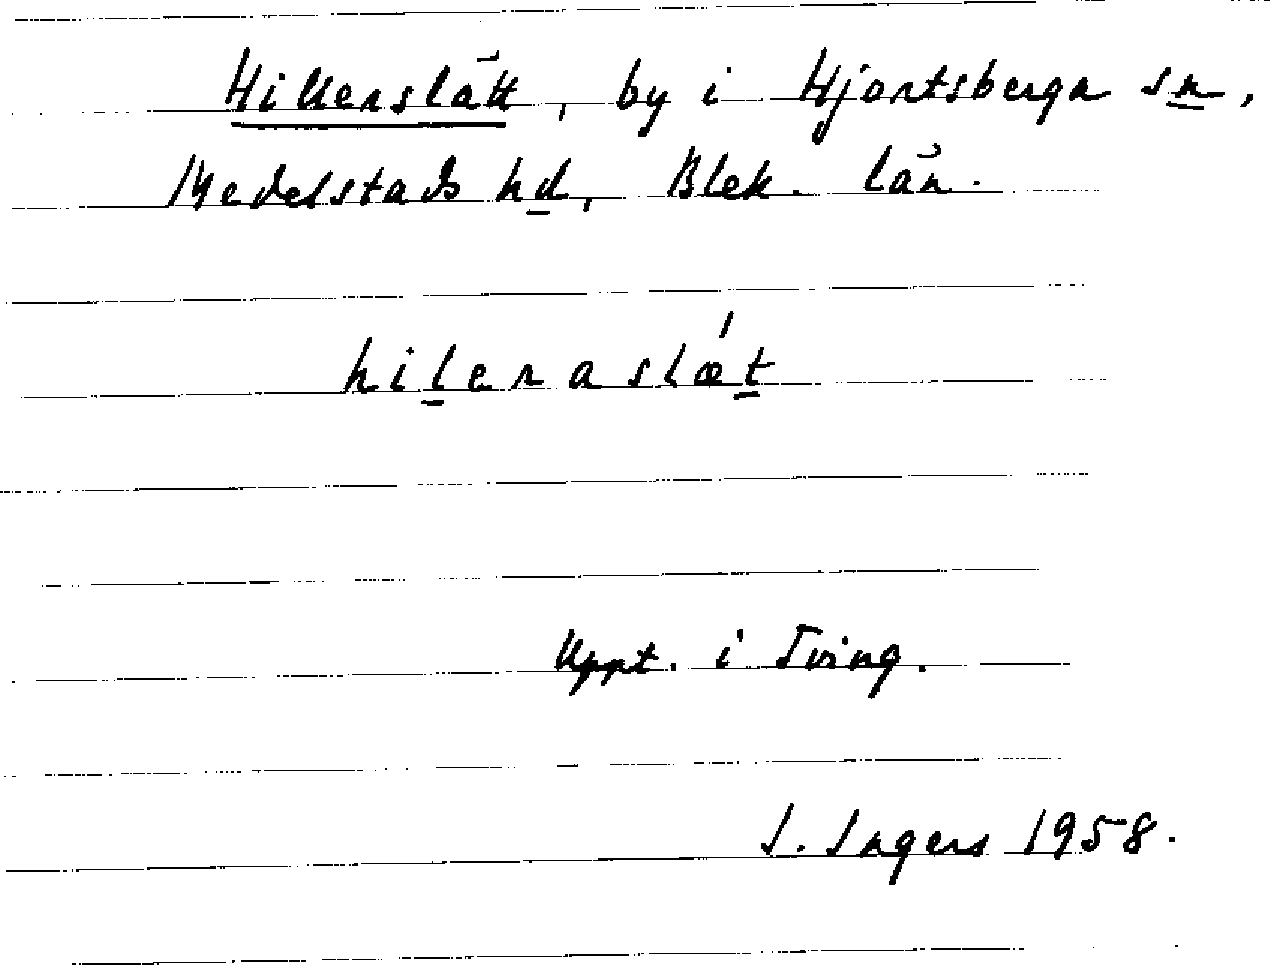 Hillerslätt, by i Hjortsberga sn,
Medelstads hd, Blek. län.
hileraslǽt
Uppt. i Tving.
I. Ingers 1958.